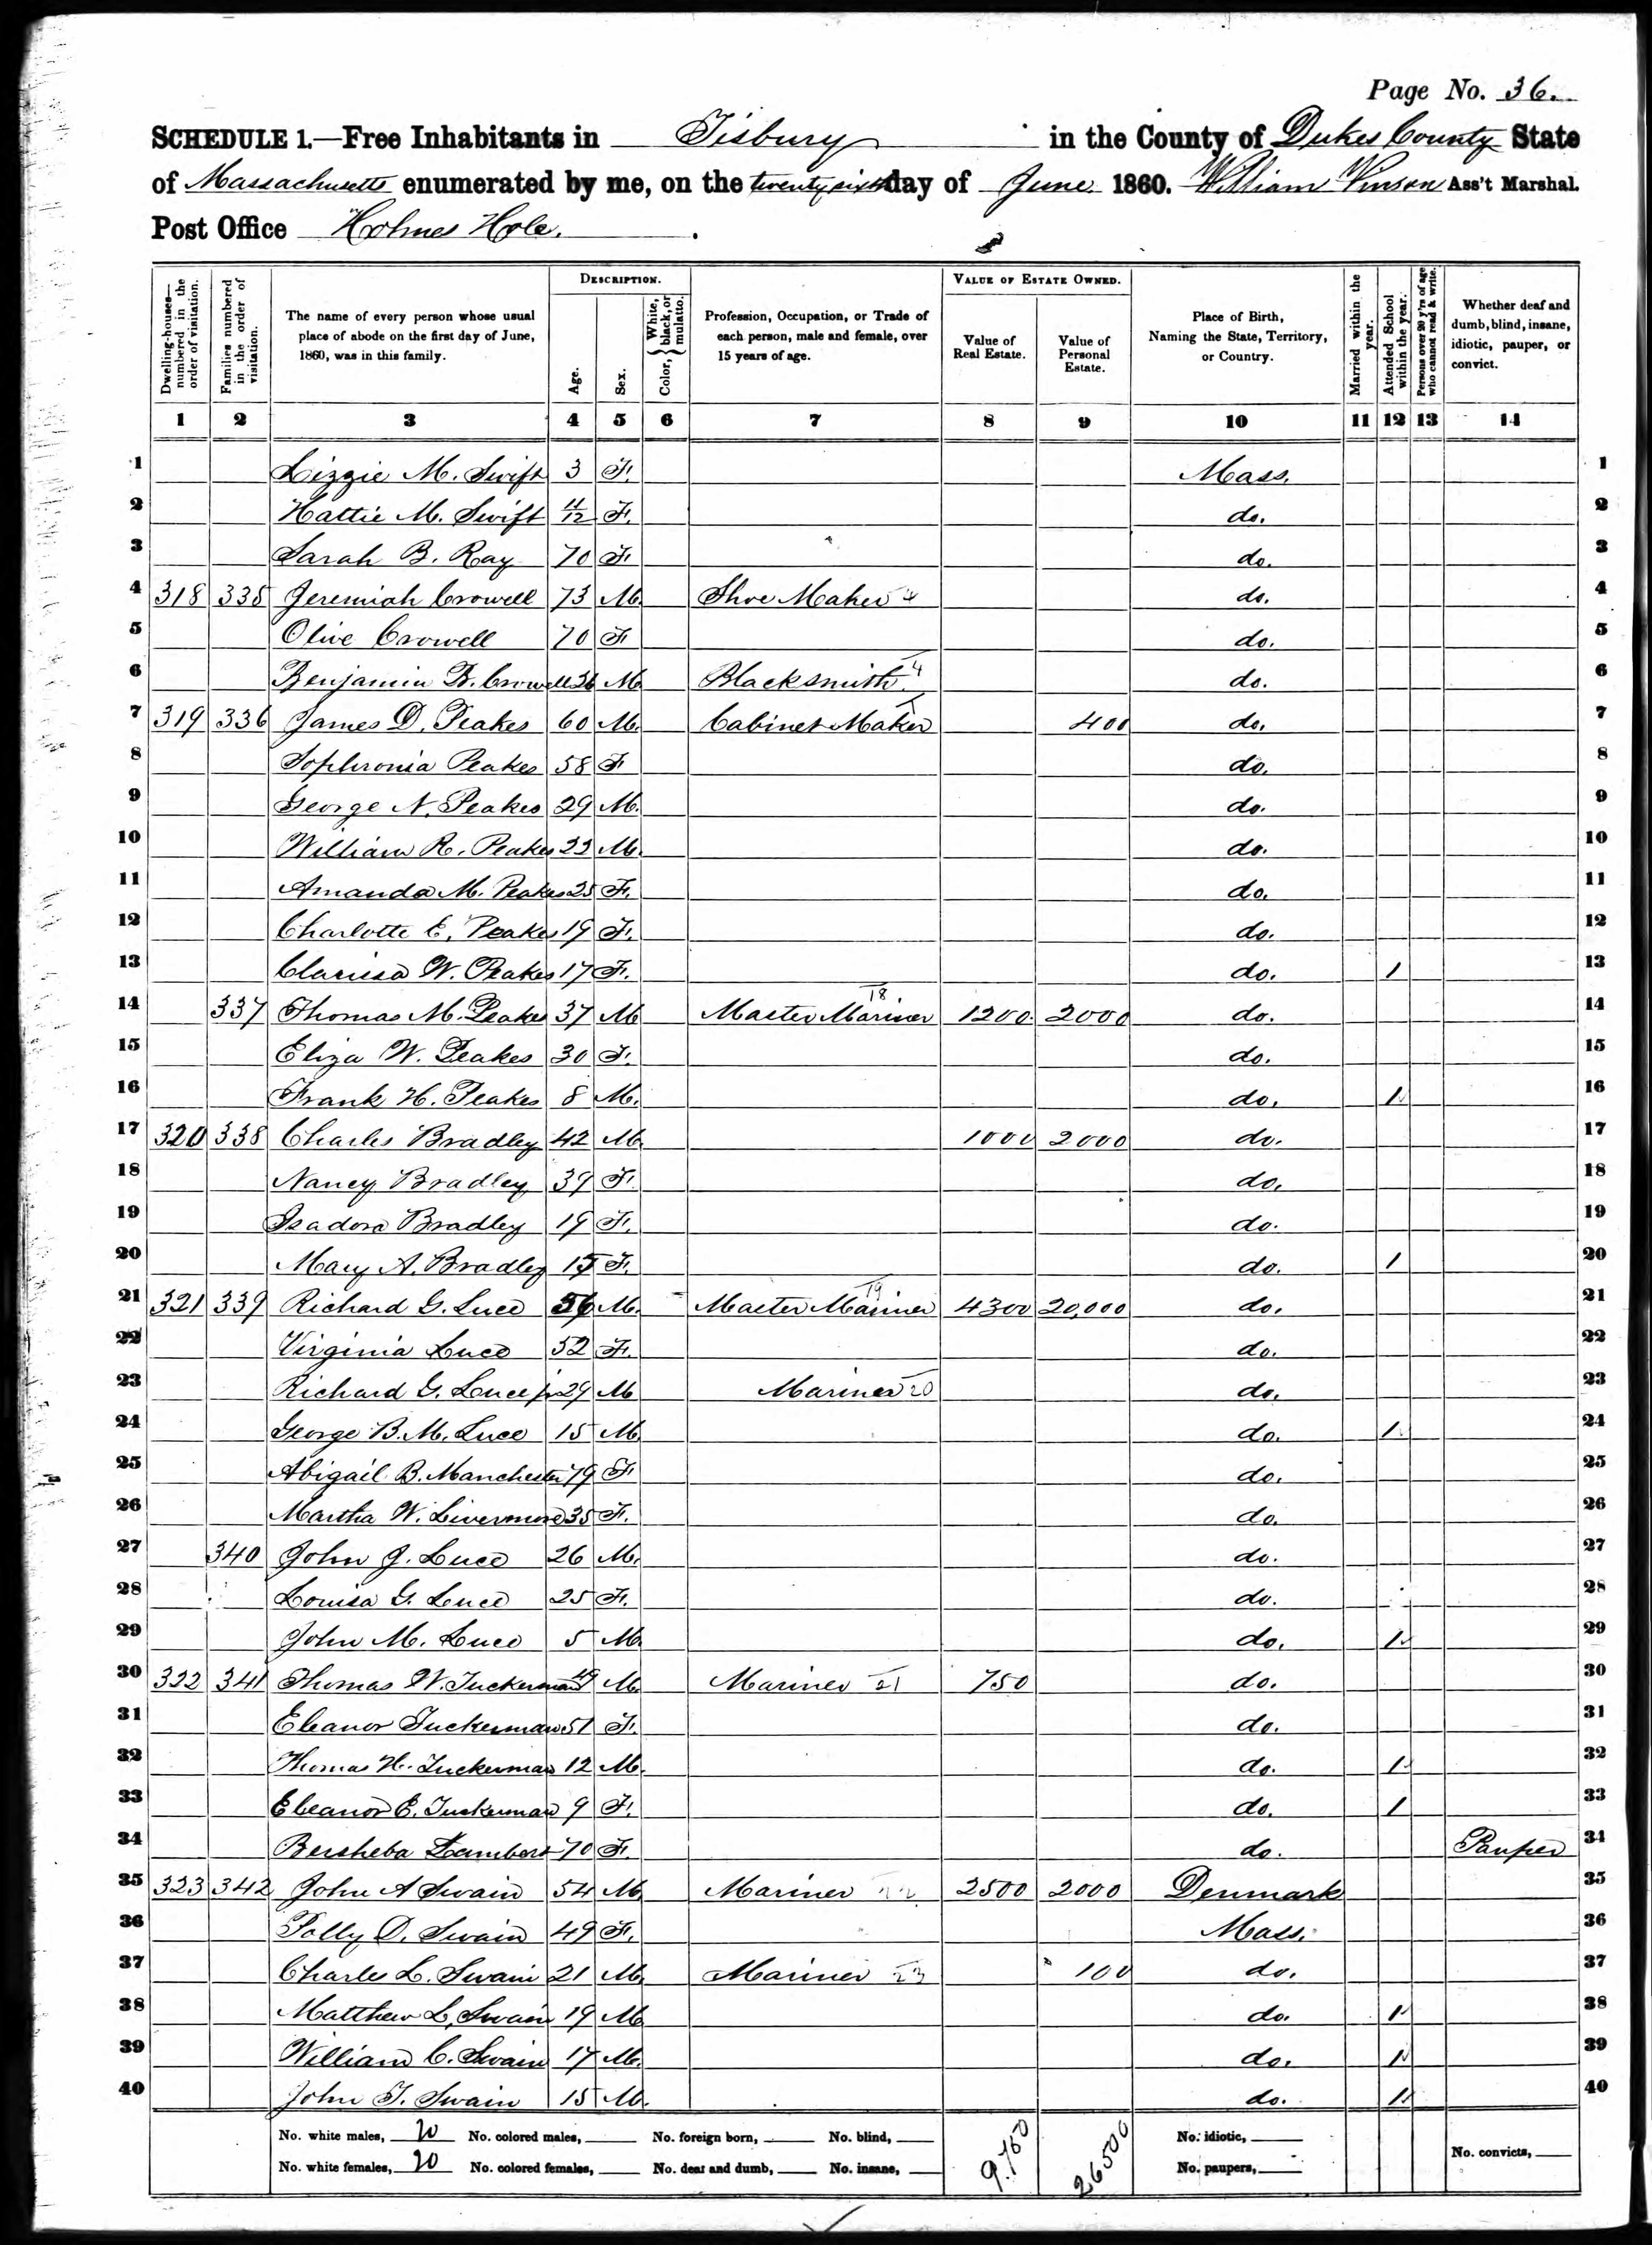 Page No. 36.
SCHEDULE 1.—Free Inhabitants in Tisbury in the County of Dukes County State
of Massachusetts enumerated by me, on the twenty sixth day of June 1860. William Vinson Ass't Marshal.
Post Office Holmes Hole.
Dwelling-houses—numbered in the order of visitation.
Families numbered in the order of visitation.
The name of every person whose usual place of abode on the first day of June, 1860, was in this family.
DESCRIPTION.
Age.
Sex.
Color, { White, black, or mulatto.
Profession, Occupation, or Trade of each person, male and female, over 15 years of age.
VALUE OF ESTATE OWNED.
Value of Real Estate.
Value of Personal Estate.
Place of Birth, Naming the State, Territory, or Country.
Married within the year.
Attended School within the year.
Persons over 20 y'rs of age who cannot read & write.
Whether deaf and dumb, blind, insane, idiotic, pauper, or convict.
1 2 3 4 5 6 7 8 9 10 11 12 13 14
1 Lizzie M. Swift 3 F. Mass. 1
2 Hattie M. Swift 11/12 F. do. 2
3 Sarah B. Ray 70 F. do. 3
4 318 335 Jeremiah Crowell 73 M. Shoe Maker 4 do. 4
5 Olive Crowell 70 F do. 5
6 Benjamin B. Crowell 36 M. Blacksmith 4 do. 6
7 319 336 James D. Peakes 60 M. Cabinet Maker 400 do. 7
8 Sophronia Peakes 58 F do. 8
9 George N. Peakes 29 M. do. 9
10 William R. Peakes 23 M. do. 10
11 Amanda M. Peakes 25 F. do. 11
12 Charlotte E. Peakes 19 F. do. 12
13 Clarissa W. Peakes 17 F. do. 1 13
14 337 Thomas M. Peakes 37 M Master Mariner 18 1200 2000 do. 14
15 Eliza W. Peakes 30 F. do. 15
16 Frank H. Peakes 8 M. do. 1 16
17 320 338 Charles Bradley 42 M. 1000 2000 do. 17
18 Nancy Bradley 39 F. do. 18
19 Isadora Bradley 19 F. do. 19
20 Mary A. Bradley 15 F. do. 1 20
21 321 339 Richard G. Luce 56 M. Master Mariner 19 4300 20,000 do. 21
22 Virginia Luce 52 F. do. 22
23 Richard G. Luce jr 29 M Mariner 20 do. 23
24 George B. M. Luce 15 M. do. 1 24
25 Abigail B. Manchester 79 F. do. 25
26 Martha W. Livermore 35 F. do. 26
27 340 John J. Luce 26 M. do. 27
28 Louisa G. Luce 25 F. do. 28
29 John M. Luce 5 M do. 1 29
30 322 341 Thomas W. Tuckerman 49 M. Mariner 21 750 do. 30
31 Eleanor Tuckerman 51 F. do. 31
32 Thomas H. Tuckerman 12 M. do. 1 32
33 Eleanor E. Tuckerman 9 F. do. 1 33
34 Bersheba Lambert 70 F. do. Pauper 34
35 323 342 John A Swain 54 M. Mariner 22 2500 2000 Denmark 35
36 Polly D. Swain 49 F. Mass. 36
37 Charles L. Swain 21 M. Mariner 23 100 do. 37
38 Matthew L. Swain 19 M. do. 1 38
39 William C. Swain 17 M. do. 1 39
40 John T. Swain 15 M. do. 1 40
No. white males, 20 No. colored males, No. foreign born, No. blind, 9,750 26500 No. idiotic,
No. white females, 20 No. colored females, No. deaf and dumb, No. insane, No. paupers, No. convicts,